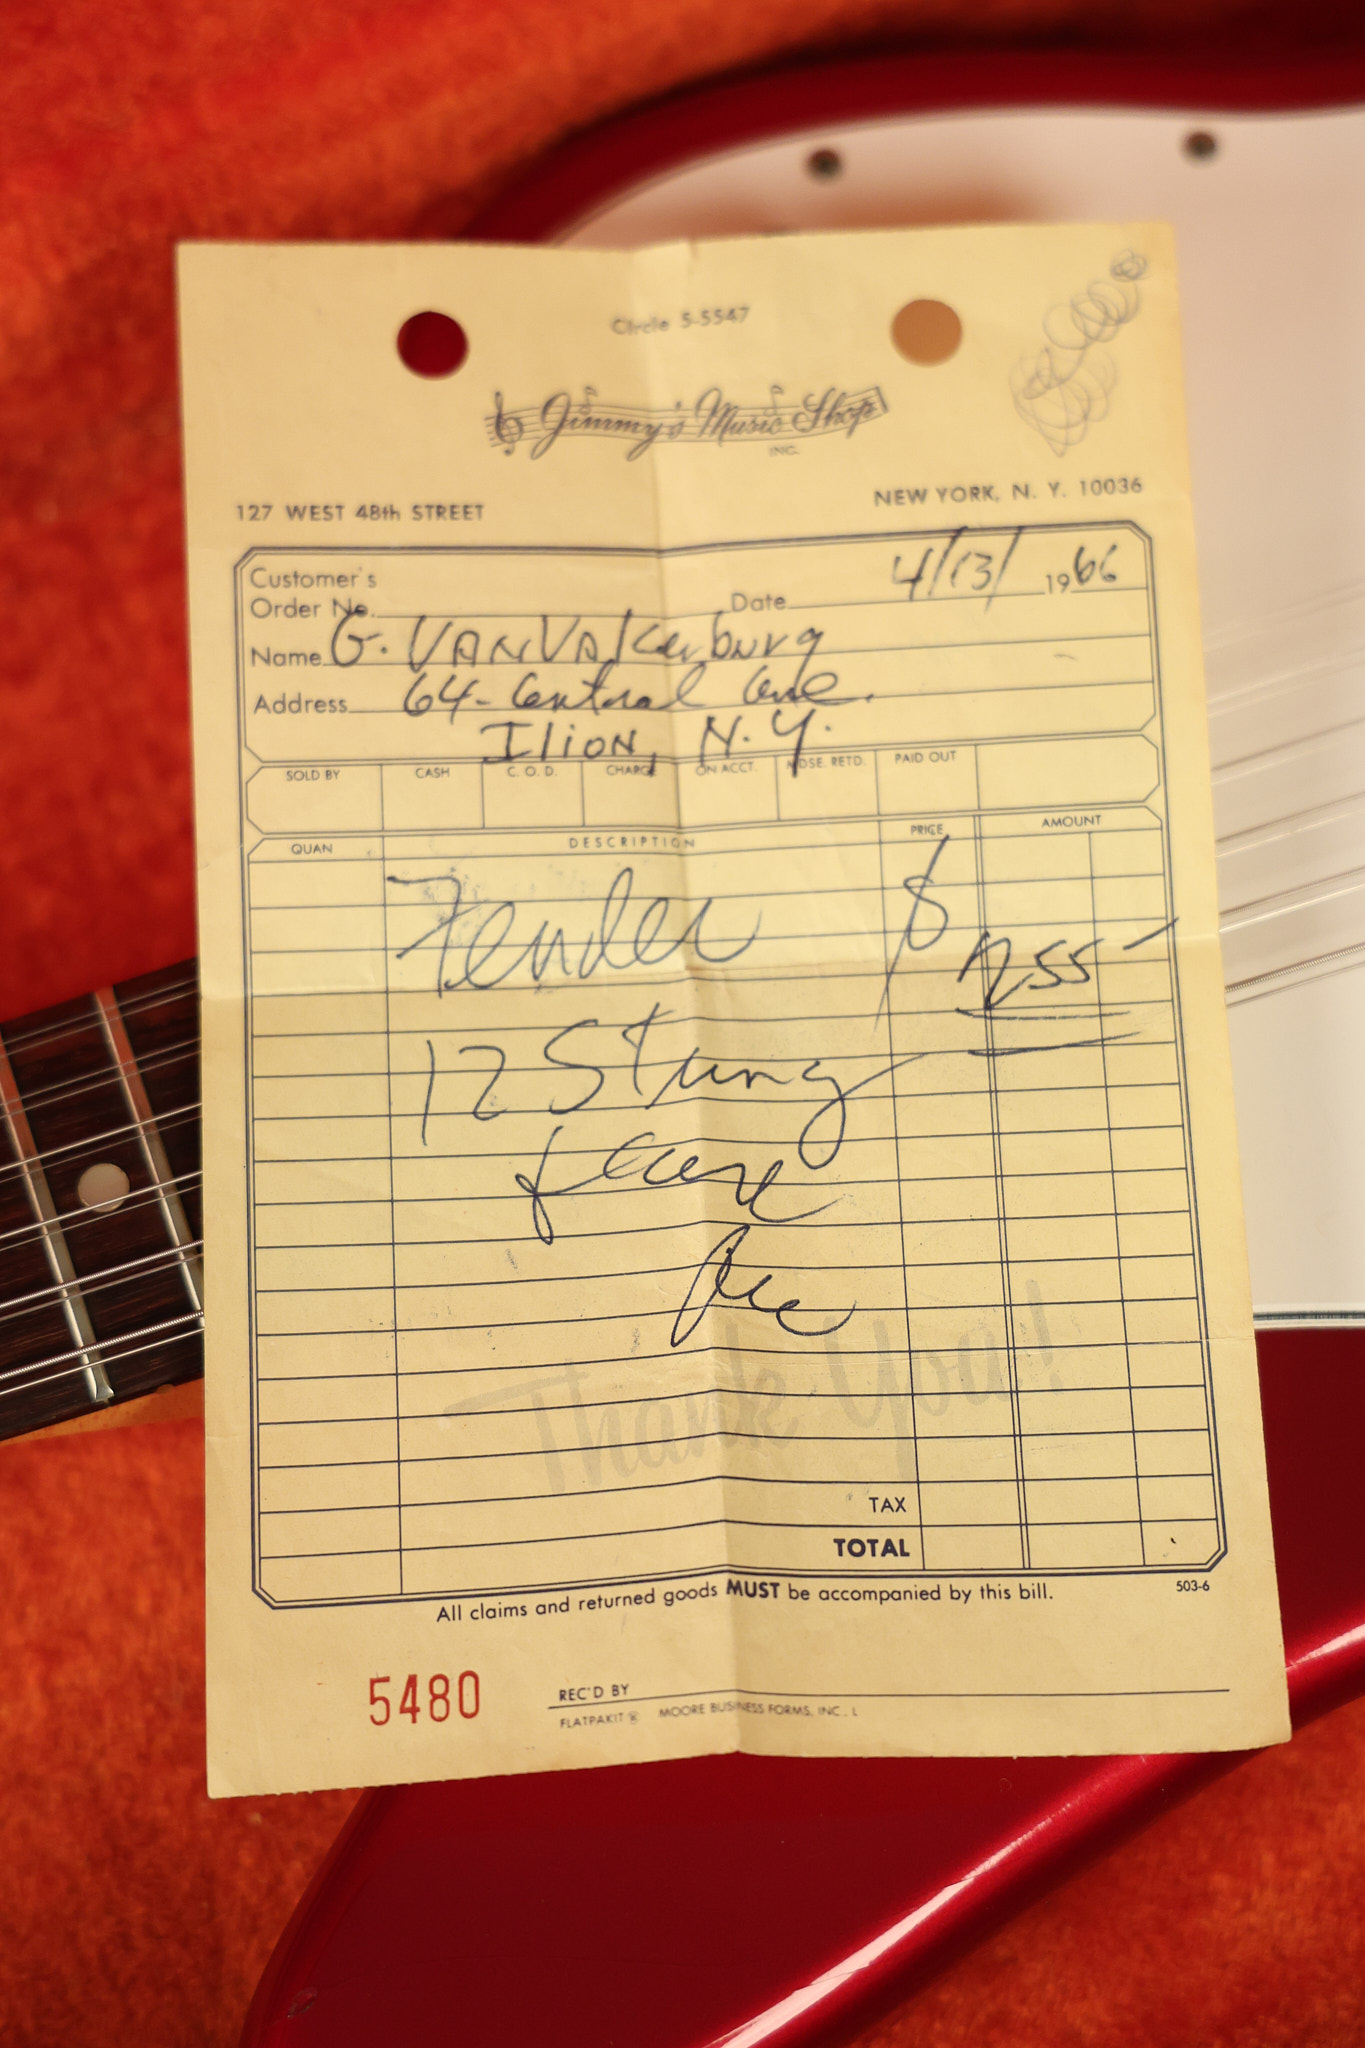 Circle 5-5547
Jimmy's Music Shop
INC.
127 WEST 48th STREET
NEW YORK, N. Y. 10036
Customer's
Order No. Date 4/13/ 1966
Name G. VANVAlKenburg
Address 64- Central Ave.
Ilion, N.Y.
SOLD BY CASH C. O. D. CHARGE ON ACCT. MDSE. RETD. PAID OUT
QUAN DESCRIPTION PRICE AMOUNT
Fender $ 255-
12 String
Case
Thank You!
TAX
TOTAL
All claims and returned goods MUST be accompanied by this bill. 503-6
5480 REC'D BY
FLATPAKIT ® MOORE BUSINESS FORMS, INC. L